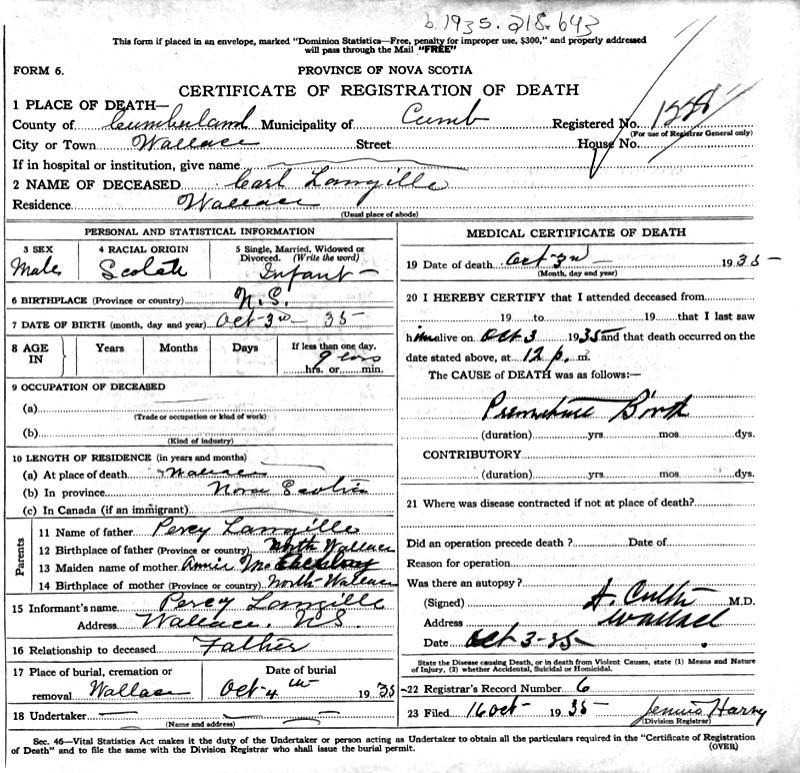 b. 1935. 218. 643
This form if placed in an envelope, marked "Dominion Statistics—Free, penalty for improper use, $300," and properly addressed
will pass through the Mail "FREE"
FORM 6.
PROVINCE OF NOVA SCOTIA
CERTIFICATE OF REGISTRATION OF DEATH
1 PLACE OF DEATH—
County of Cumberland Municipality of Cumb Registered No.
(For use of Registrar General only)
City or Town Wallace Street House No.
If in hospital or institution, give name
2 NAME OF DECEASED Carl Langille
Residence Wallace
(Usual place of abode)
PERSONAL AND STATISTICAL INFORMATION
3 SEX 4 RACIAL ORIGIN 5 Single, Married, Widowed or
Divorced. (Write the word)
Male Infant
6 BIRTHPLACE (Province or country) N.S.
7 DATE OF BIRTH (month, day and year) Oct-3rd 35
8 AGE IN Years Months Days If less than one day,
9 hrs. or min.
9 OCCUPATION OF DECEASED
(a)
(Trade or occupation or kind of work)
(b)
(Kind of industry)
10 LENGTH OF RESIDENCE (in years and months)
(a) At place of death Wallace
(b) In province Nova Scotia
(c) In Canada (if an immigrant)
Parents
11 Name of father Percy Langille
12 Birthplace of father (Province or country) North Wallace
13 Maiden name of mother Annie
14 Birthplace of mother (Province or country) North-Wallace
15 Informant's name Percy Langille
Address Wallace, N.S
16 Relationship to deceased Father
17 Place of burial, cremation or Date of burial
removal Wallace Oct-4th 1935
18 Undertaker
(Name and address)
MEDICAL CERTIFICATE OF DEATH
19 Date of death Oct-3rd 1935-
(Month, day and year)
20 I HEREBY CERTIFY that I attended deceased from
19 to 19 that I last saw
him alive on Oct-3 1935 and that death occurred on the
date stated above, at 12 p. m.
The CAUSE of DEATH was as follows:—
Premature Birth
(duration) yrs mos dys.
CONTRIBUTORY
(duration) yrs mos dys.
21 Where was disease contracted if not at place of death?
Did an operation precede death? Date of
Reason for operation
Was there an autopsy?
(Signed) M.D.
Address Wallace
Date Oct-3-35
State the Disease causing Death, or in death from Violent Causes, state (1) Means and Nature
of Injury, (2) whether Accidental, Suicidal or Homicidal.
22 Registrar's Record Number 6
23 Filed 16 Oct- 1935-
(Division Registrar)
Sec. 46—Vital Statistics Act makes it the duty of the Undertaker or person acting as Undertaker to obtain all the particulars required in the "Certificate of Registration
of Death" and to file the same with the Division Registrar who shall issue the burial permit.
(OVER)